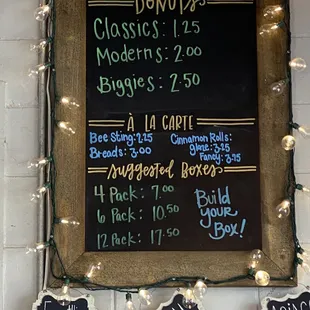 DONUTS
Classics: 1.25
Moderns: 2.00
Biggies: 2.50
À LA CARTE
Bee Sting: 2.25
Breads: 3.00
Cinnamon Rolls:
glaze: 3.25
Fancy: 3.75
Suggested Boxes
4 Pack: 7.00
6 Pack: 10.50
12 Pack: 17.50
Build
your
Box!